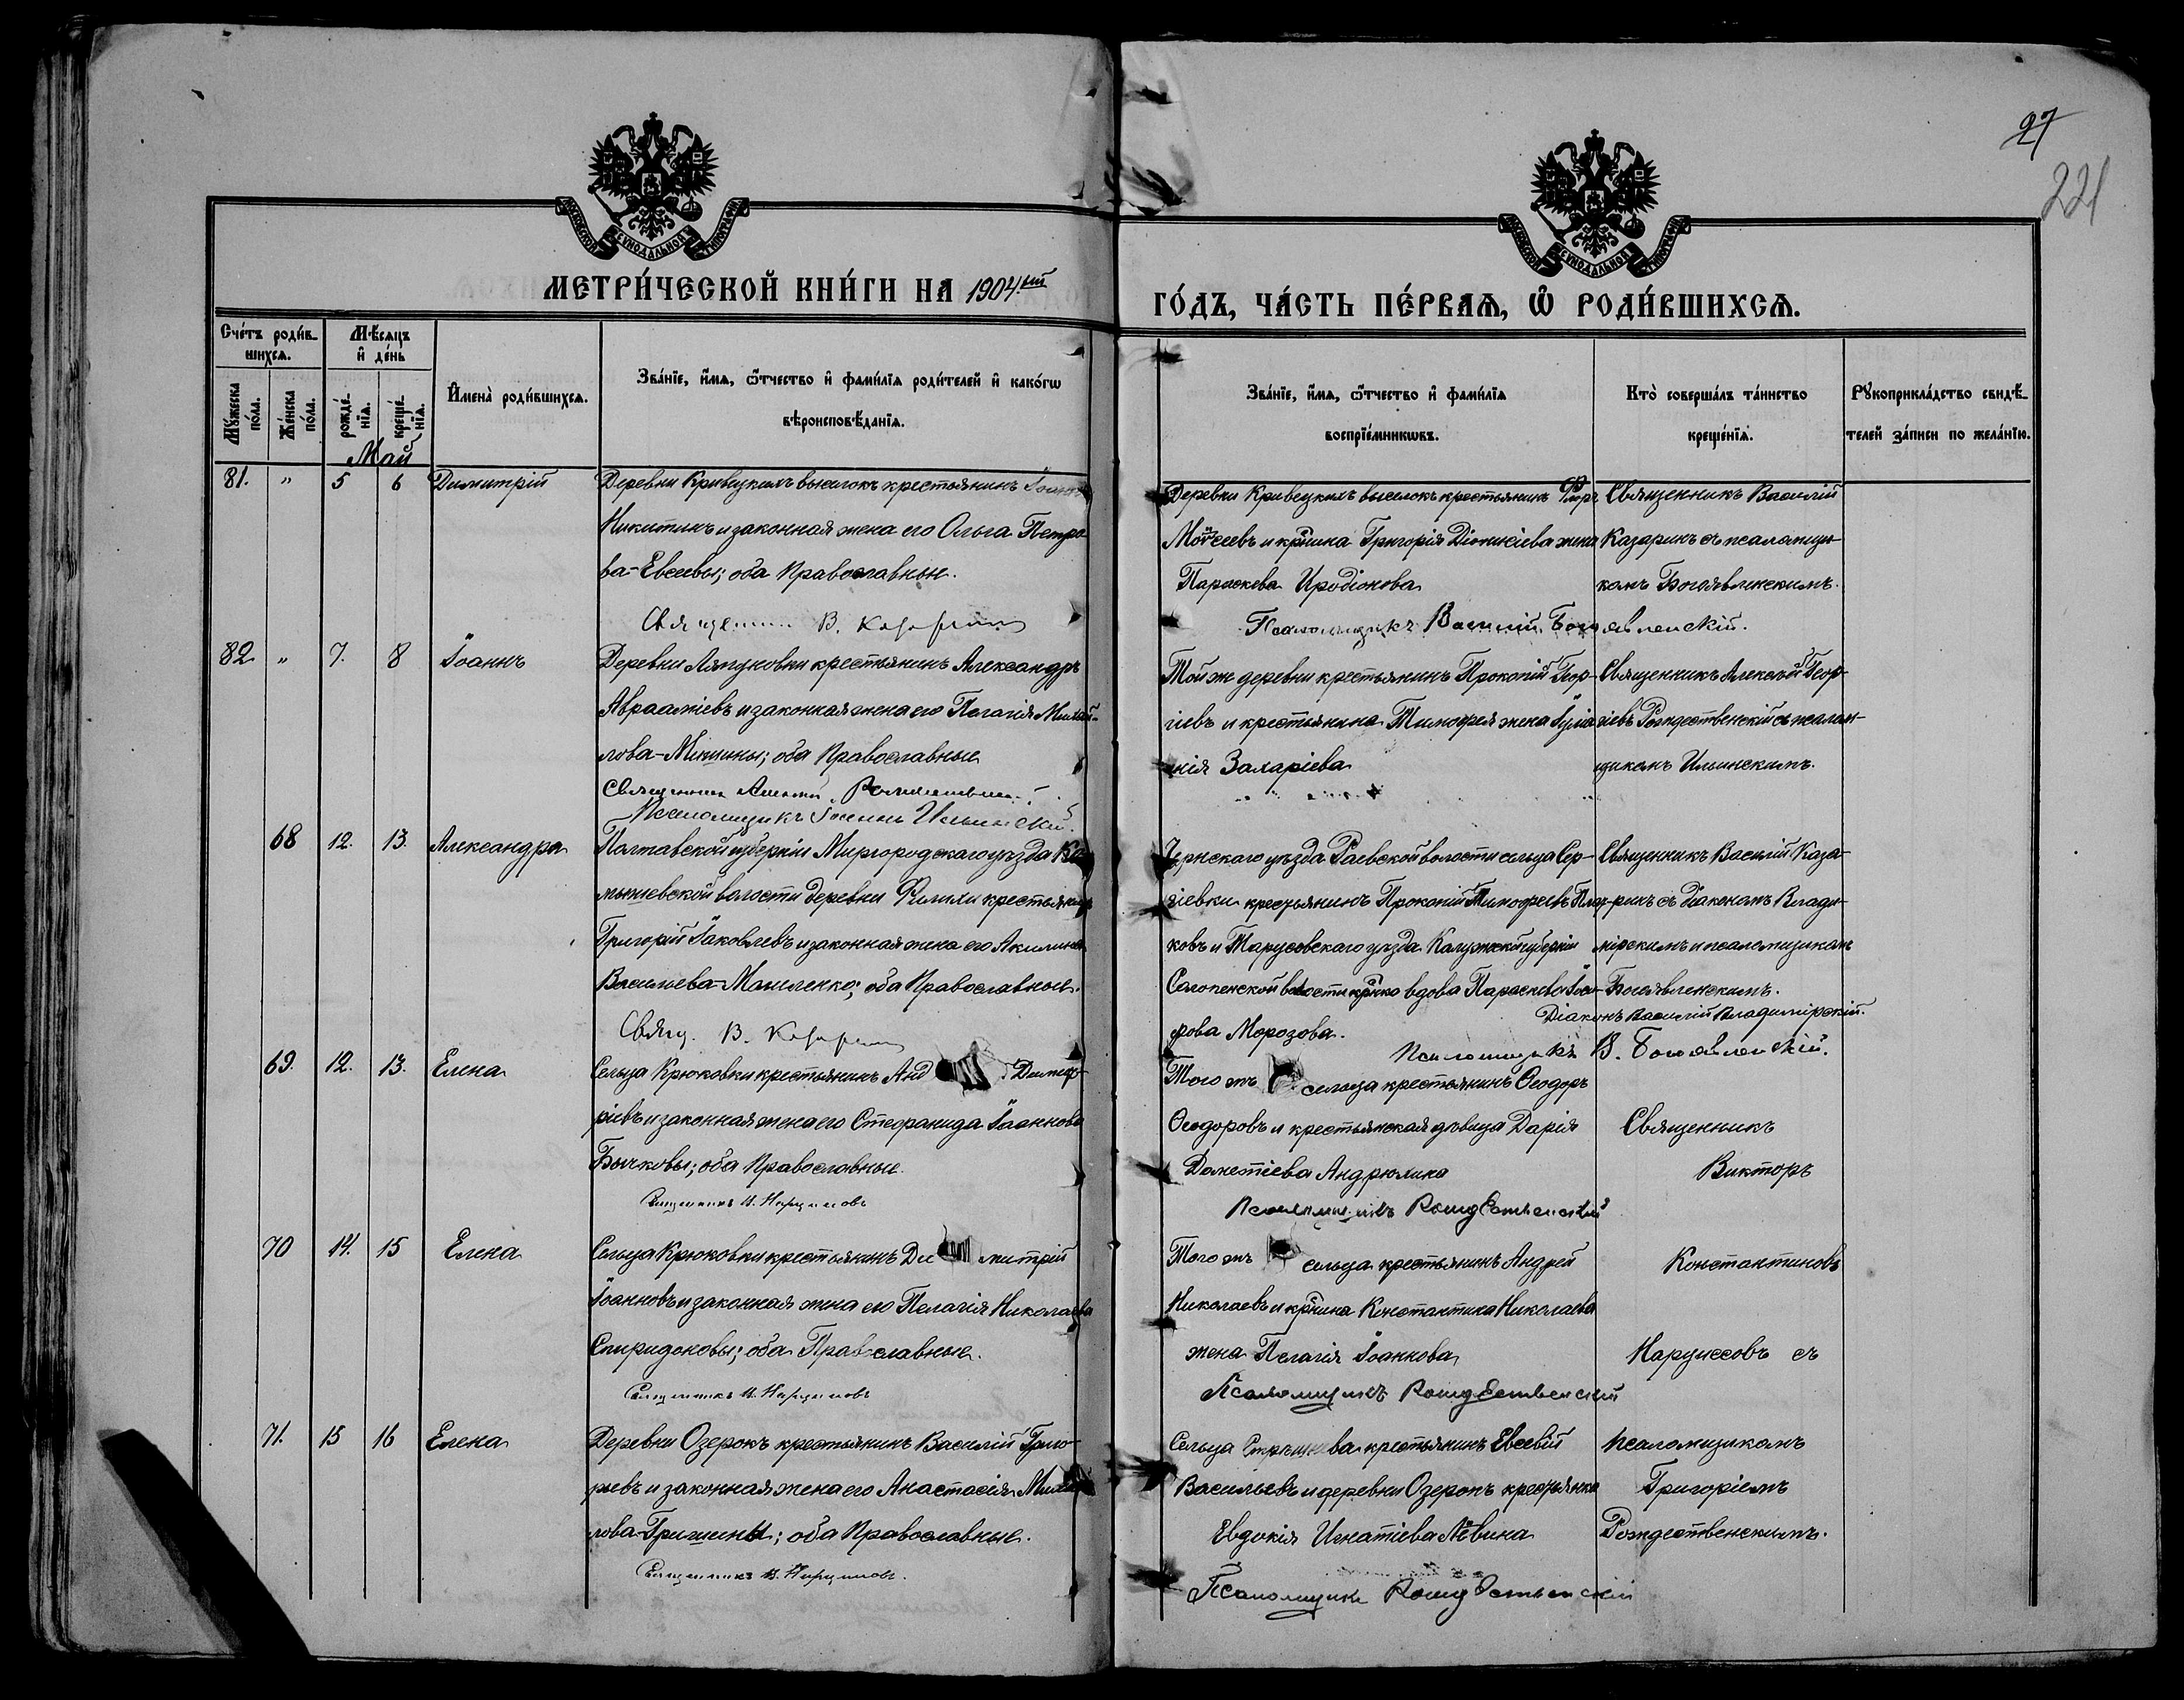 27
221
МОСКОВСКОЙ СУНОДАЛЬНОЙ ТИПОГРАФІИ
МЕТРИ́ЧЕСКОЙ КНИ́ГИ НА 1904.ый
МОСКОВСКОЙ СУНОДАЛЬНОЙ ТИПОГРАФІИ
ГО́ДЪ, ЧА́СТЬ ПЕ́РВАѦ, Ѡ҆ РОДИ́ВШИХСѦ.
Сче́тъ роди́в-
шихсѧ.
Мꙋ́жеска по́ла.
Же́нска по́ла.
Мѣ́сѧцъ
и҆ де́нь
рожде́-
нїѧ.
креще́-
нїѧ.
Май
И҆мена̀ роди́вшихсѧ.
Зва́нїе, и҆́мѧ, ѻ҆́тчество и҆ фами́лїѧ роди́телей и҆ како́гѡ
вѣроисповѣ́данїѧ.
Зва́нїе, и҆́мѧ, ѻ҆́тчество и҆ фами́лїѧ
воспрїе́мникѡвъ.
Кто̀ соверша́лъ та́инство
креще́нїѧ.
Рꙋкоприкла́дство свидѣ́-
телей за́писи по жела́нїю.
81. " 5 6 Димитрій
Деревни Кривецкихъ выселокъ крестьянинъ
Никитинъ и законная жена его Ольга Петро-
ва-Евсеевы; оба Православные.
Священникъ В. Казаринъ
Деревни Кривецкихъ выселокъ крестьянинъ Флоръ
Моѵсеевъ и кр-нина Григорія Діонисіева жена
Параскева Иродіонова
Псаломщикъ Василій Богоявленскій.
Священникъ Василій
Казаринъ съ псаломщи-
комъ Богоявленскимъ.
82. " 7. 8 Іоаннъ
Деревни Ляпуновки крестьянинъ Александръ
Авраамiевъ и законная жена его Пелагія Михай-
лова-Мишины; оба Православные
Священникъ Алексѣй Рождественскій.
Псаломщикъ Іоаннъ Ильинскій.
Той же деревни крестьянинъ Прокопій Геор-
гіевъ и крестьянина Тимоѳея жена Іулiа-
нія Захаріева
Священникъ Алексѣй Геор-
гіевъ Рождественскій съ псалом-
щикомъ Ильинскимъ.
68 12. 13. Александра
Полтавской губерніи Миргородскаго уѣзда Ка-
мышевской волости деревни крестьянинъ
Григорій Іаковлевъ и законная жена его Акилина
Васильева-; оба Православные.
Свящ. В. Казаринъ
Чернскаго уѣзда Раевской волости сельца Сер-
гіевки крестьянинъ Прокопій Тимоѳеевъ
ковъ и Тарусовскаго уѣзда Калужской губерніи
Салопенской волости кр-нка вдова Параскева
рова Морозова.
Священникъ Василій Каза-
ринъ съ Діакономъ Влади-
мірскимъ и псаломщикомъ
Богоявленскимъ.
Діаконъ Василій Владимірскій.
Псаломщикъ В. Богоявленскій.
69. 12. 13. Елена
Сельца Крюковки крестьянинъ Анд Димит-
ріевъ и законная жена его Стефанида Іоаннова
Бычковы; оба Православные.
Священникъ В. Нарциссовъ
Того жъ сельца крестьянинъ Ѳеодоръ
Ѳеодоровъ и крестьянская дѣвица Дарія
Дометіева Андрюхина
Псаломщикъ Рождественскій
Священникъ
Викторъ
70 14. 15 Елена
Сельца Крюковки крестьянинъ Ди митрій
Іоанновъ и законная жена его Пелагія Николаева
Спиридоновы; оба Православные.
Священникъ В. Нарциссовъ
Того жъ сельца крестьянинъ Андрей
Николаевъ и кр-нина Константина Николаева
жена Пелагія Іоаннова
Псаломщикъ Рождественскій
Константиновъ
Нарциссовъ съ
71. 15 16 Елена
Деревни Озерокъ крестьянинъ Василій Григо-
рьевъ и законная жена его Анастасія Михай-
лова-Гришины; оба Православные.
Священникъ В. Нарциссовъ.
Сельца крестьянинъ Евсевій
Васильевъ и деревни Озерокъ крестьянка
Евдокія Игнатіева Лёвина
Псаломщикъ Рождественскій
псаломщикомъ
Григоріемъ
Рождественскимъ.